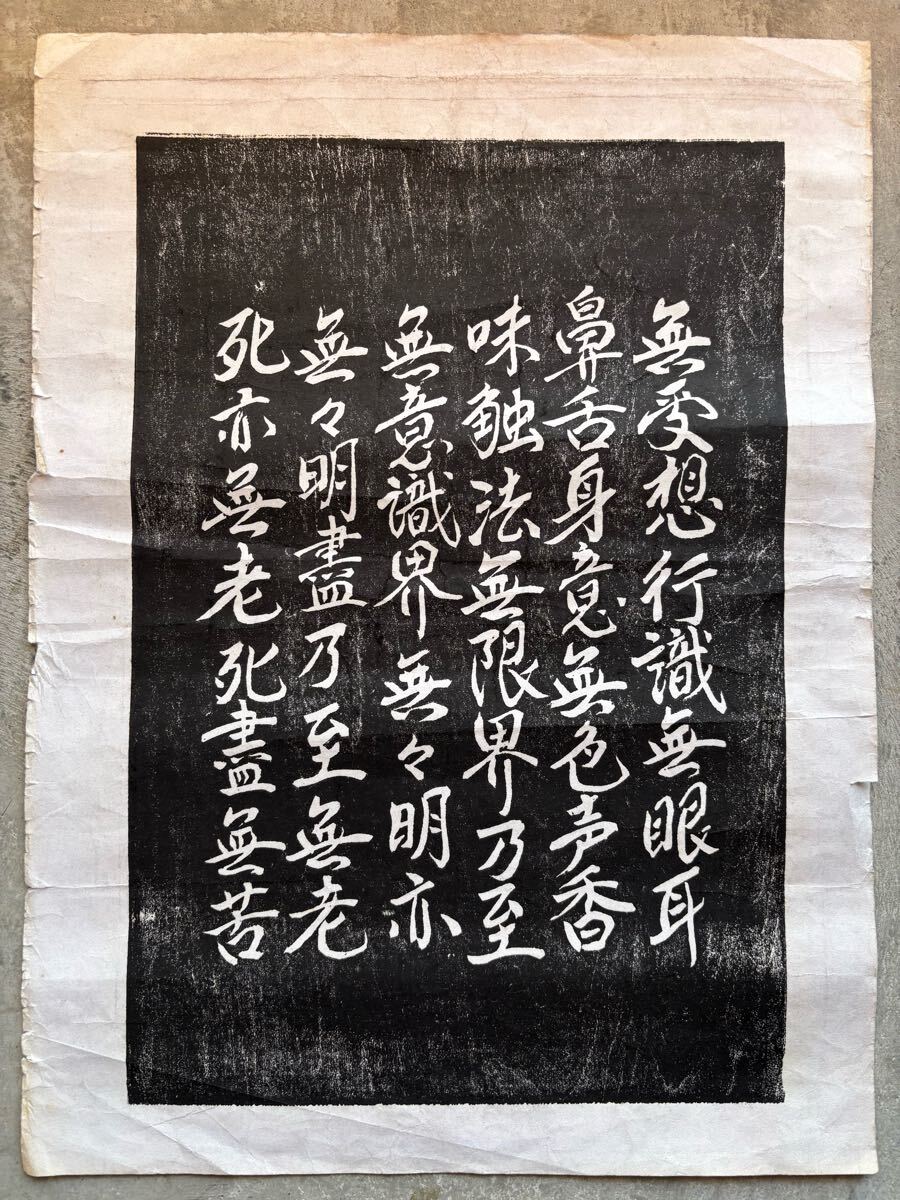 無受想行識無眼耳
鼻舌身意無色声香
味触法無限界乃至
無意識界無々明亦
無々明盡乃至無老
死亦無老死盡無苦